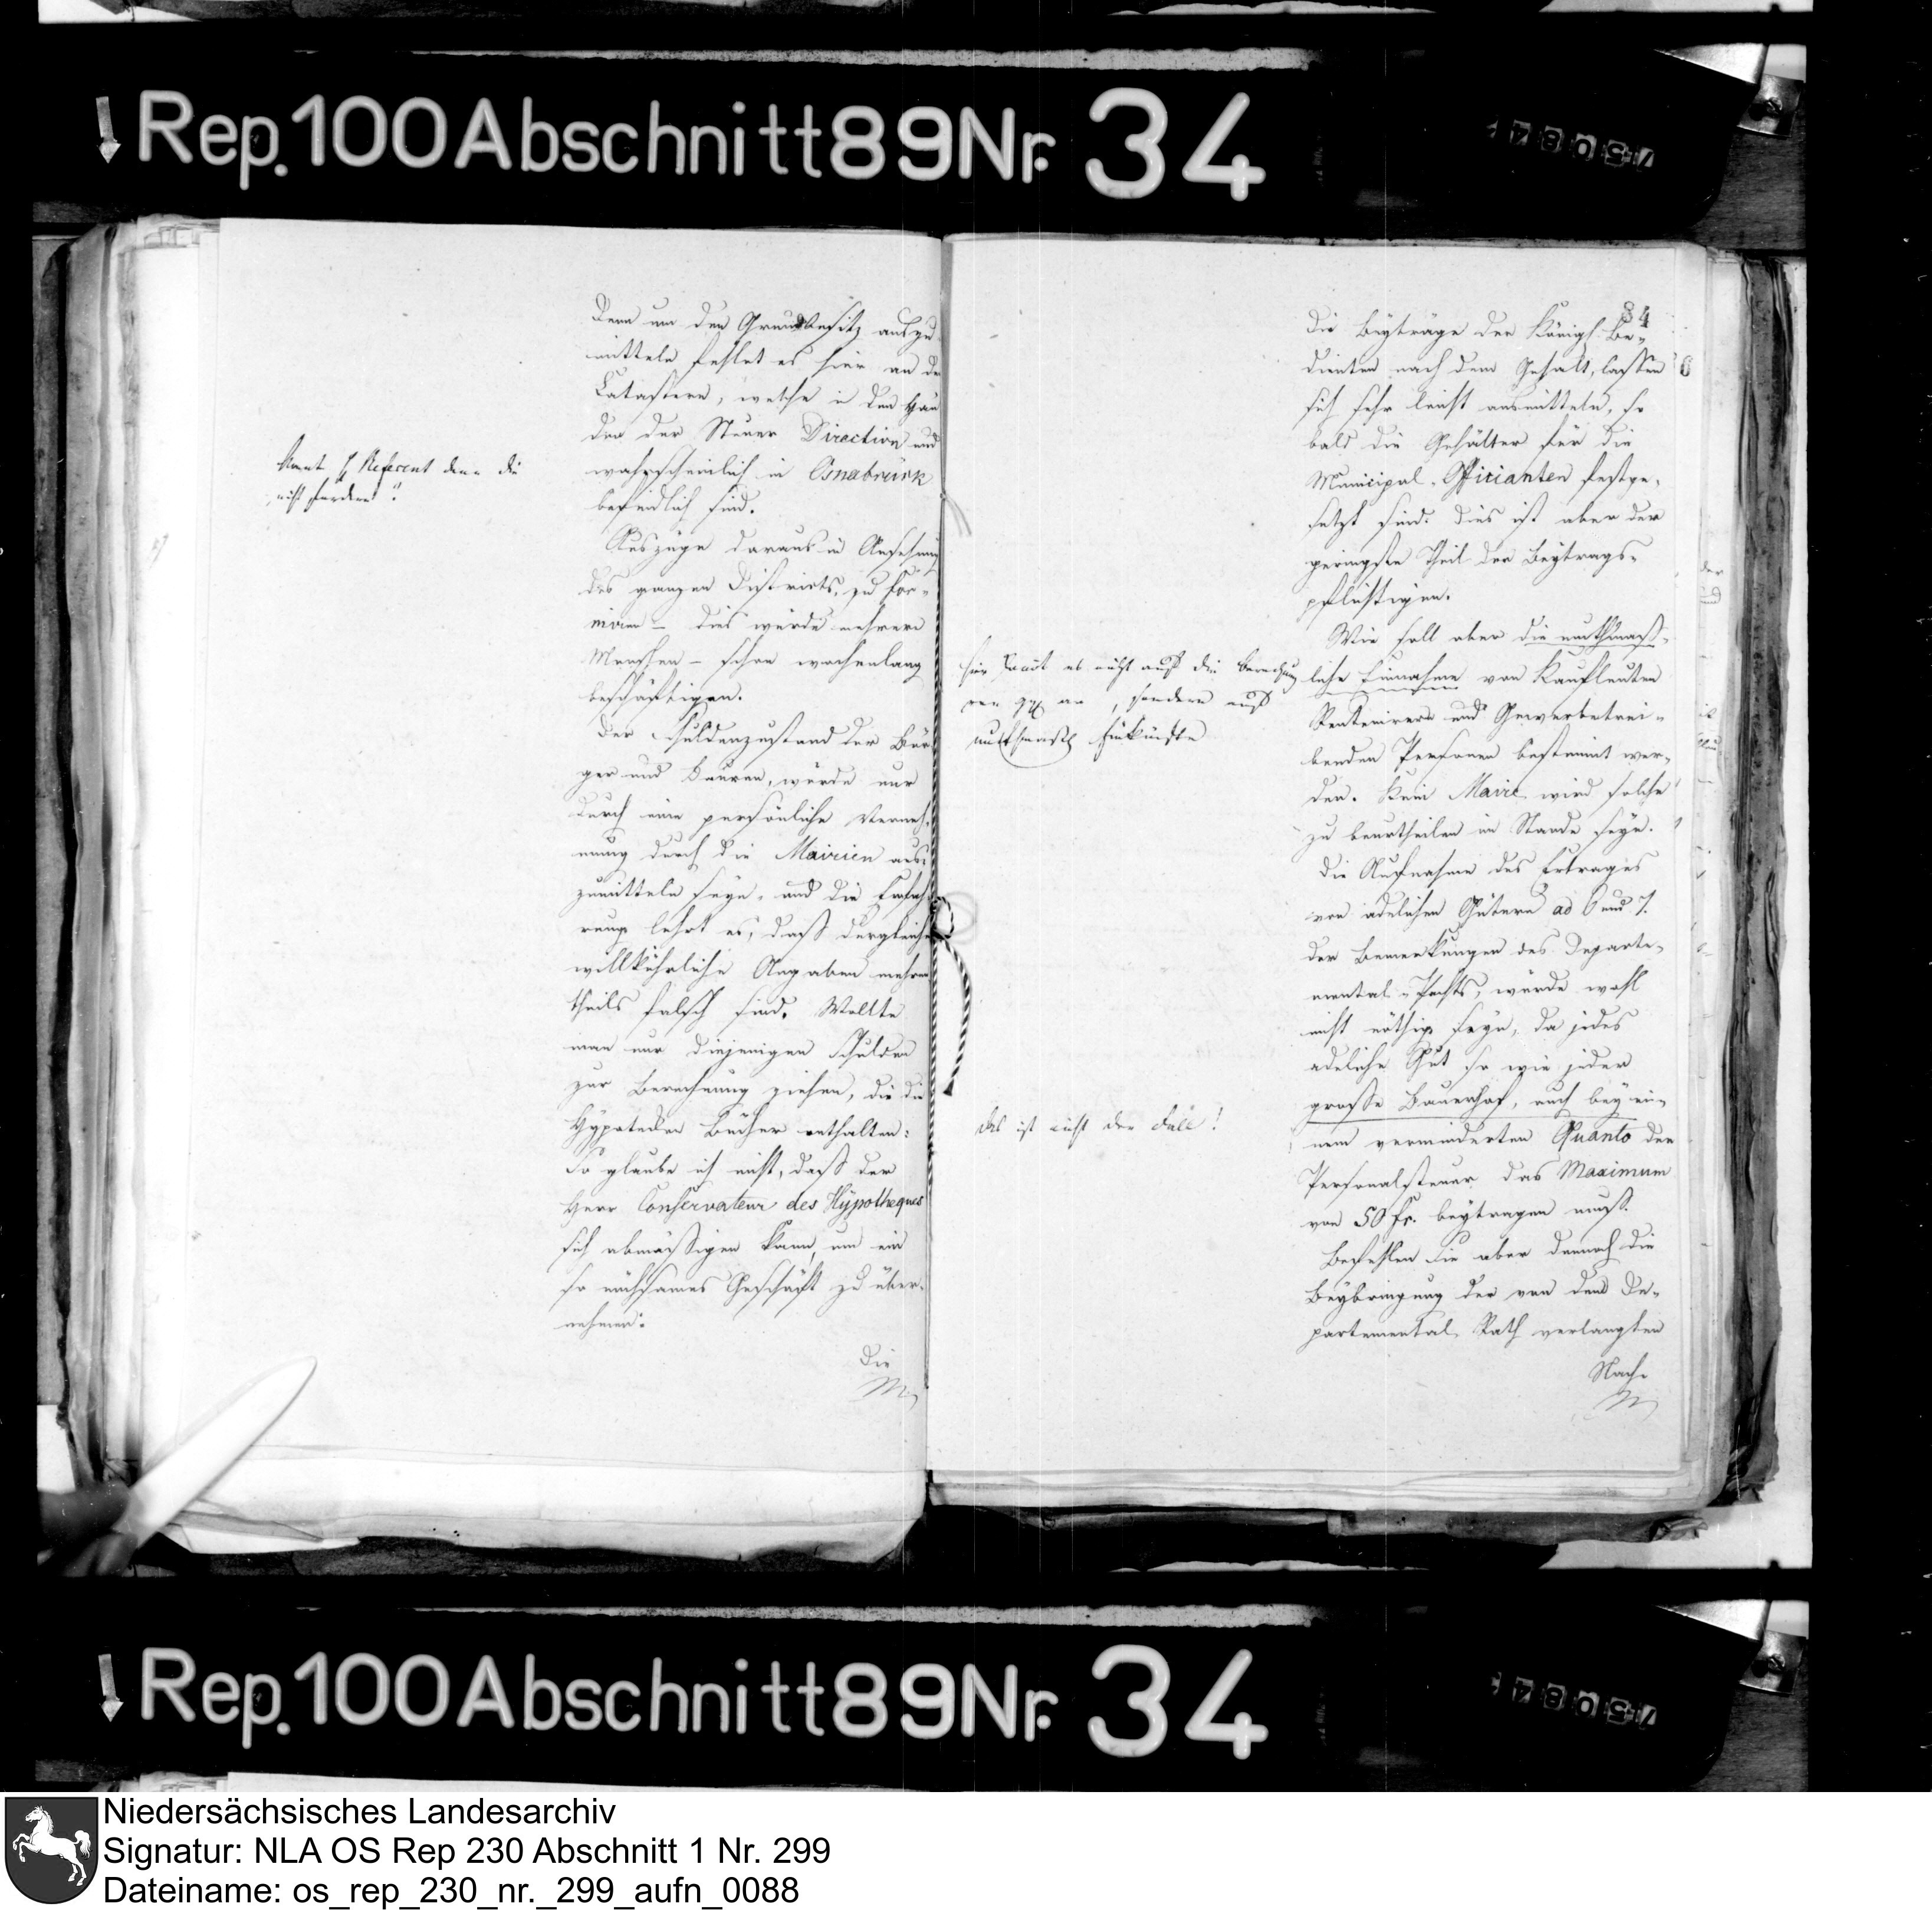 Rep. 100 Abschnitt 89 Nr. 34
75084
Denn um den Grundbesitz auszu-
mitteln fehlet es hier an den
Catastern, welche in den Hän
den der Steuer Direction und
wahrscheinlich in Osnabrück
befindlich sind.
Auszüge daraus in Ansehung
des ganzen Districts, zu for-
miren – dies würde mehrere
Menschen – schon wochenlang
beschäftigen.
Der Schuldenzustand der Bür
ger und Bauren, würde nur
durch eine persönliche Verneh-
mung durch die Mairien aus-
zumitteln seyn, und die Erfah-
rung lehrt es, daß dergleichen
willkührliche Angaben mehren
theils falsch sind. Wollte
man nur diejenigen Schulden
zur Berechnung ziehen, die die
Hypoteken Bücher enthalten:
So glaube ich nicht, daß der
Herr Conservateur des Hÿpotheques
sich abmüßigen kann, um ein
so mühsames Geschäft zu über-
nehmen.
Die
Referent denn die
nicht fordern?
84
Die Beyträge der Königl. Be-
dienten nach dem Gehalt, lassen
sich sehr leicht ausmitteln, so
bald die Gehälter für die
Municipal-Officianten festge-
setzt sind. Dies ist aber der
geringste Theil der Beytrags-
pflichtigen.
Wie soll aber die muthmaß-
liche Einnahme von Kaufleuten
Rentenirern und Gewerbetrei-
benden Personen bestimmt wer-
den. Kein Maire wird solche
zu beurtheilen im Stande seyn.
Die Aufnahme des Ertrages
von adelichen Gütern ad 6 und 7.
der Bemerkungen des Departe-
mental-Raths, würde wohl
nicht nöthig seyn, da jedes
adeliche Gut so wie jeder
große Bauerhof, auch bey ei-
nem verminderten Quanto der
Personalsteuer das Maximum
von 50 fr. beytragen muß.
Befehlen Sie aber dennoch die
Beybringung der von dem De-
partemental-Rath verlangten
Nach-
hier kommt es nicht auf die Berechnung
an, sondern auf
muthmaßl Einkünfte
das ist nicht der Fall!
Rep. 100 Abschnitt 89 Nr. 34
75084
Niedersächsisches Landesarchiv
Signatur: NLA OS Rep 230 Abschnitt 1 Nr. 299
Dateiname: os_rep_230_nr._299_aufn_0088